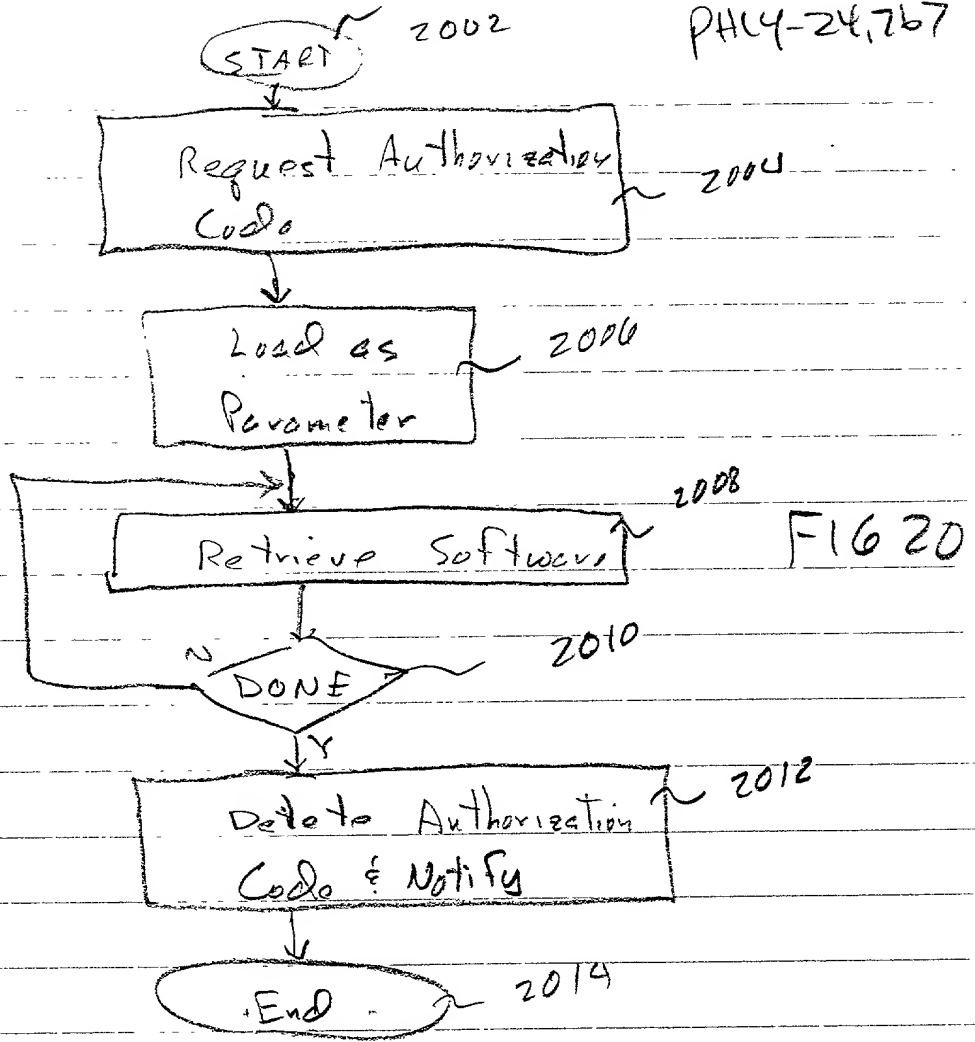 PHLY-24,767
2002
START
Request Authorization
Code
2004
Load as
Parameter
2006
2008
Retrieve Software
FIG 20
N
DONE
2010
Y
Delete Authorization
Code & Notify
2012
End
2014